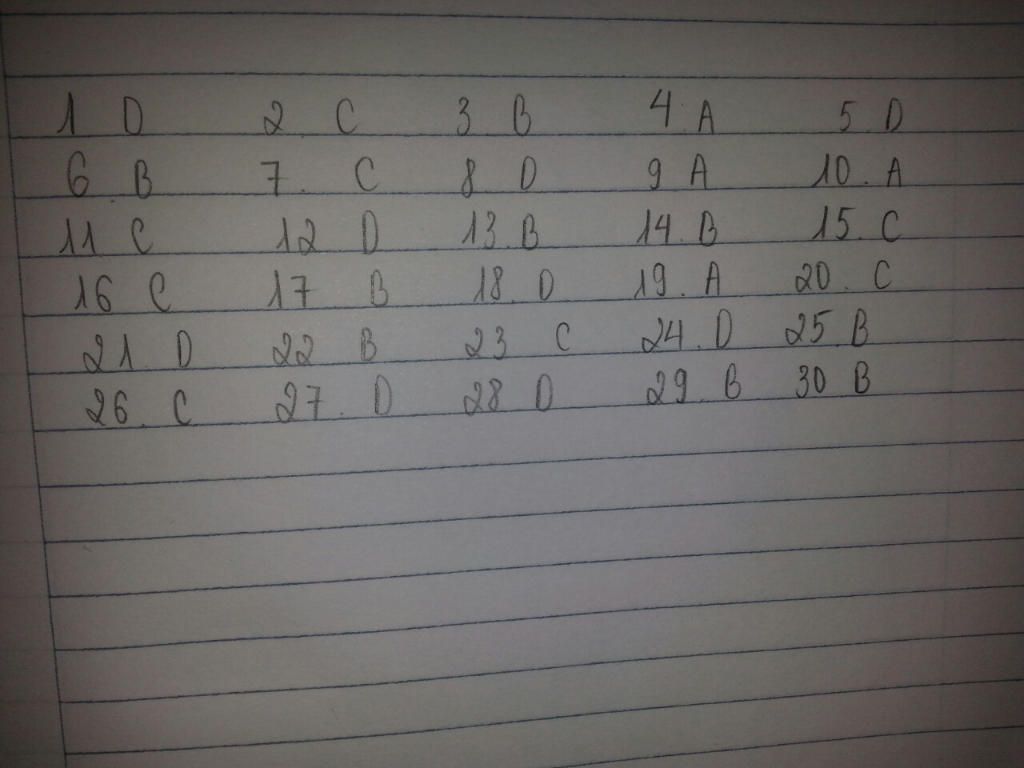 1 D 2 C 3 B 4 A 5 D
6 B 7. C 8 D 9 A 10. A
11 C 12 D 13 B 14 B 15 C
16 C 17 B 18 D 19. A 20. C
21 D 22 B 23 C 24. D 25. B
26. C 27. D 28 D 29. B 30 B